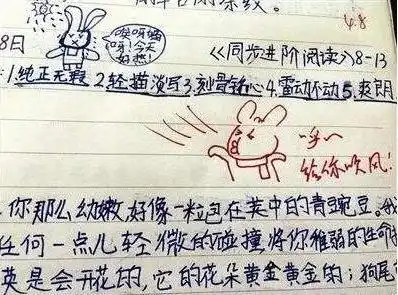 4.8
8日
唉呀妈呀!今天好热!
《同步进阶阅读》8-13
1.纯正无瑕 2.轻描淡写 3.刻骨铭心 4.雷动不动 5.爽朗
呼~
给你吹风!
你那么幼嫩,好像一粒包在荚中的青豌豆。我
任何一点儿轻微的碰撞将你稚弱的生命
英是会开花的,它的花朵黄金黄金的;狗尾